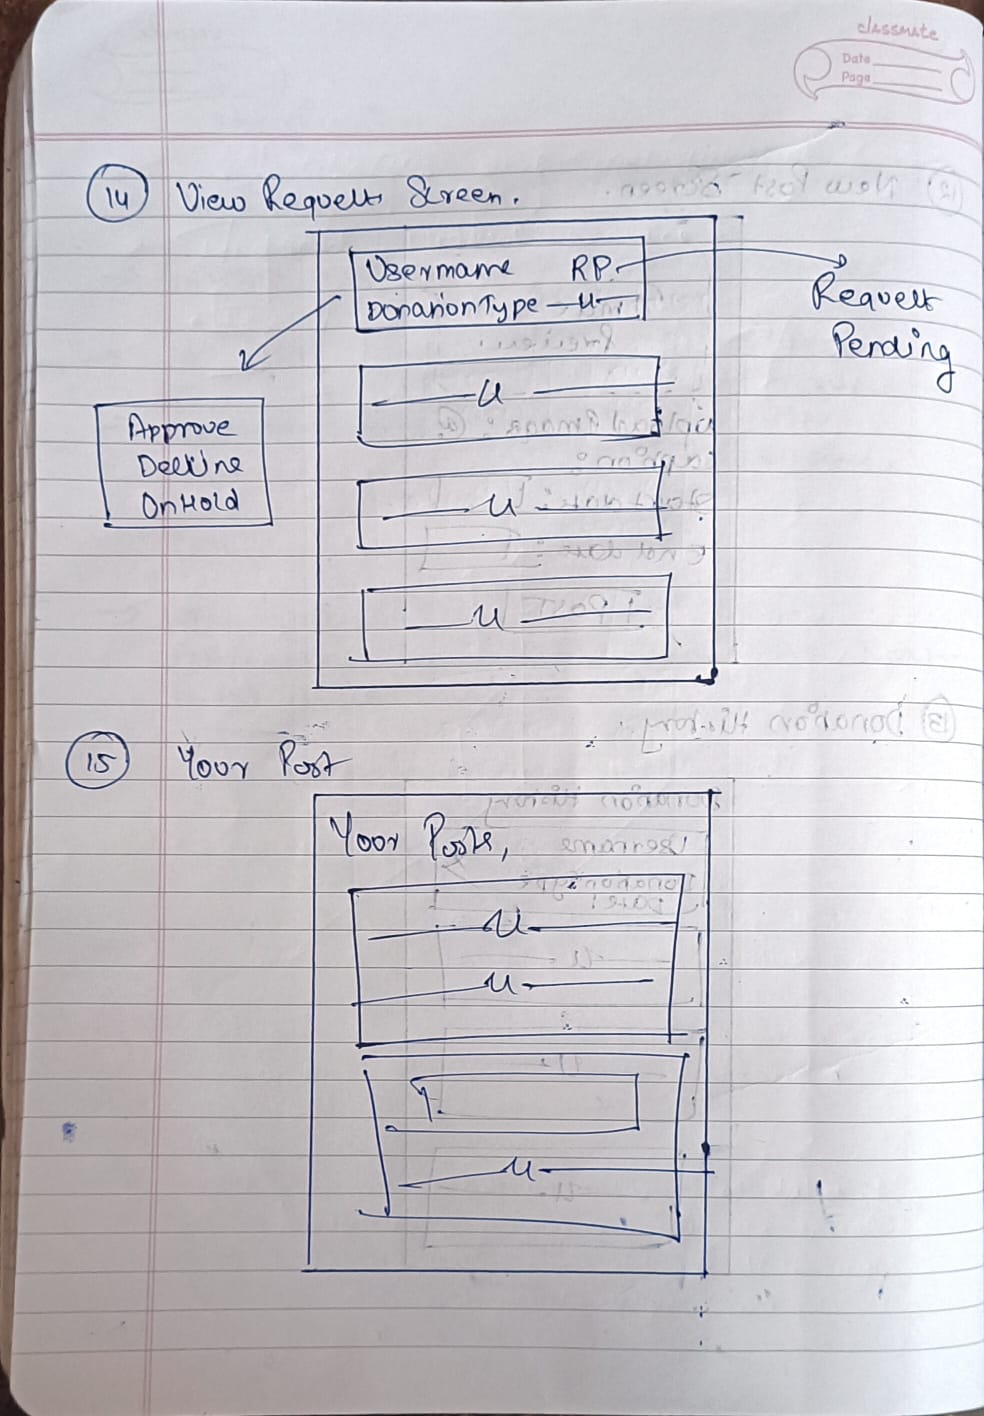 classmate
Date
Page
14 View Requests Screen.
Username RP.
DonationType —u—
Request
Pending
—u—
Approve
Decline
OnHold
—u—
—u—
15 Your Post
Your Posts,
—u—
—u—
—u—